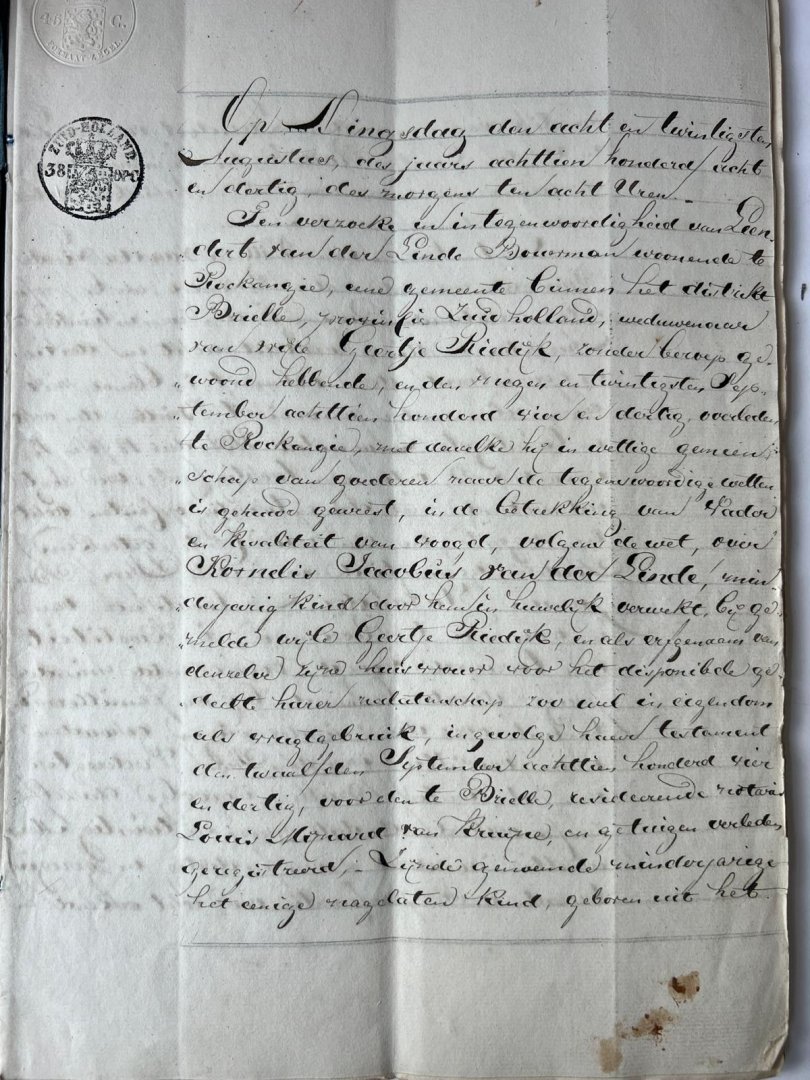 45 C.
FORMAAT ZEGEL
ZUID-HOLLAND.
38 OPC
Op Dingsdag den acht en twintigsten
Augustus, des jaars achttien honderd acht
en dertig, des morgens ten acht Uren.
Ten verzoeke en in tegenwoordigheid van Leen-
dert van der Linde Bouwman woonende te
Rockangie, eene gemeente binnen het distrikt
Brielle, provinsie Zuidholland, weduwenaar
van wijle Geertje Riedijk, zonder beroep ge-
„woond hebbende, en den negen en twintigsten Sep-
„tember achttien honderd vier en dertig, overleden
te Rockangie, met dewelke hij in wettige gemeen-
„schap van goederen naar de tegenswoordige wetten
is gehuwd geweest, in de betrekking van Vader
en kwaliteit van voogd, volgens de wet, over
Kornelis Jacobus van der Linde, min-
„derjarig kind door hem in huwelijk verwekt, bij ge-
„melde wijle Geertje Riedijk, en als erfgenaam van
denzelve zijne huisvrouw voor het disponibele ge-
„deelte harer nalatenschap zoo wel in eigendom
als vrugtgebruik, ingevolge haar testament
den twaalfden September achttien honderd vier
en dertig, voor den te Brielle, resideerende notaris
Louis Mijnard van, en getuigen verleden
geregistreerd; Zijnde genoemde minderjarige
het eenige nagelaten kind, geboren uit het